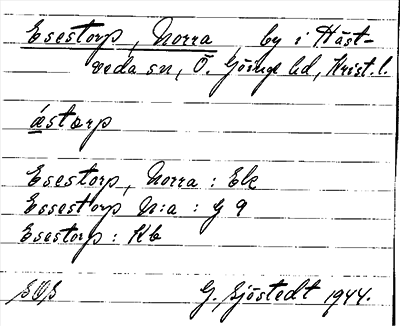 Esestorp, Norra, by i Häst-
veda sn, Ö. Göinge hd, Krist. l.
ästorp
Esestorp, Norra : Ek
Essestorp N:a : G 9
Esestorp : Kb
SOS G. Sjöstedt 1944.